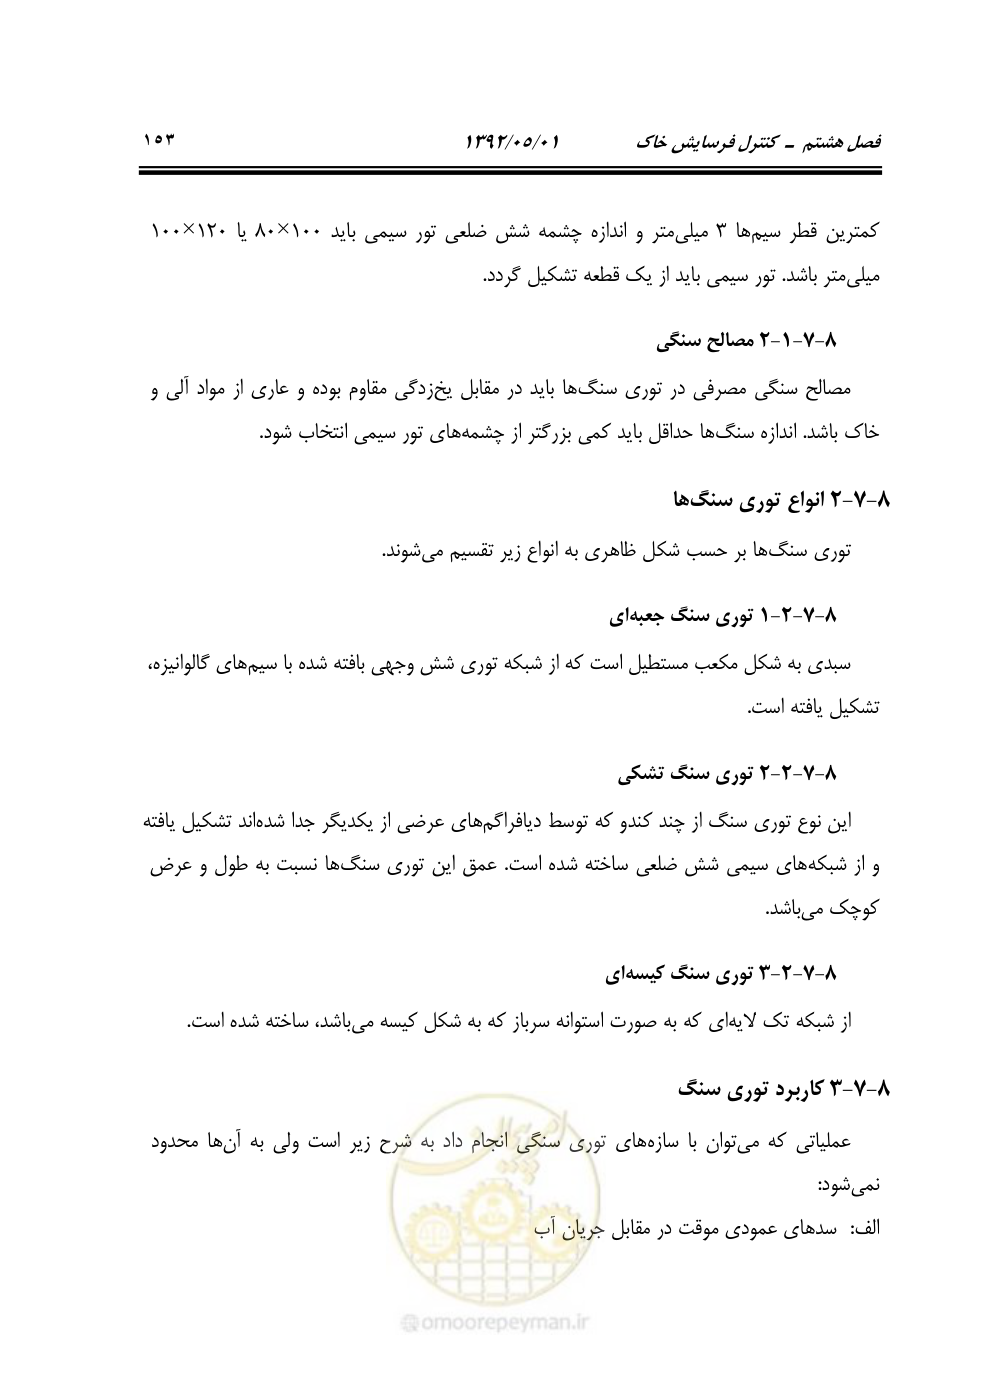 فصل هشتم ـ کنترل فرسایش خاک ۱۳۹۲/۰۵/۰۱ ۱۵۳
کمترین قطر سیم‌ها ۳ میلی‌متر و اندازه چشمه شش ضلعی تور سیمی باید ۱۰۰×۸۰ یا ۱۲۰×۱۰۰
میلی‌متر باشد. تور سیمی باید از یک قطعه تشکیل گردد.
۸-۷-۱-۲ مصالح سنگی
مصالح سنگی مصرفی در توری سنگ‌ها باید در مقابل یخ‌زدگی مقاوم بوده و عاری از مواد آلی و
خاک باشد. اندازه سنگ‌ها حداقل باید کمی بزرگتر از چشمه‌های تور سیمی انتخاب شود.
۸-۷-۲ انواع توری سنگ‌ها
توری سنگ‌ها بر حسب شکل ظاهری به انواع زیر تقسیم می‌شوند.
۸-۷-۲-۱ توری سنگ جعبه‌ای
سبدی به شکل مکعب مستطیل است که از شبکه توری شش وجهی بافته شده با سیم‌های گالوانیزه،
تشکیل یافته است.
۸-۷-۲-۲ توری سنگ تشکی
این نوع توری سنگ از چند کندو که توسط دیافراگم‌های عرضی از یکدیگر جدا شده‌اند تشکیل یافته
و از شبکه‌های سیمی شش ضلعی ساخته شده است. عمق این توری سنگ‌ها نسبت به طول و عرض
کوچک می‌باشد.
۸-۷-۲-۳ توری سنگ کیسه‌ای
از شبکه تک لایه‌ای که به صورت استوانه سرباز که به شکل کیسه می‌باشد، ساخته شده است.
۸-۷-۳ کاربرد توری سنگ
عملیاتی که می‌توان با سازه‌های توری سنگی انجام داد به شرح زیر است ولی به آن‌ها محدود
نمی‌شود:
الف: سدهای عمودی موقت در مقابل جریان آب
امور پیمان
@omoorepeyman.ir